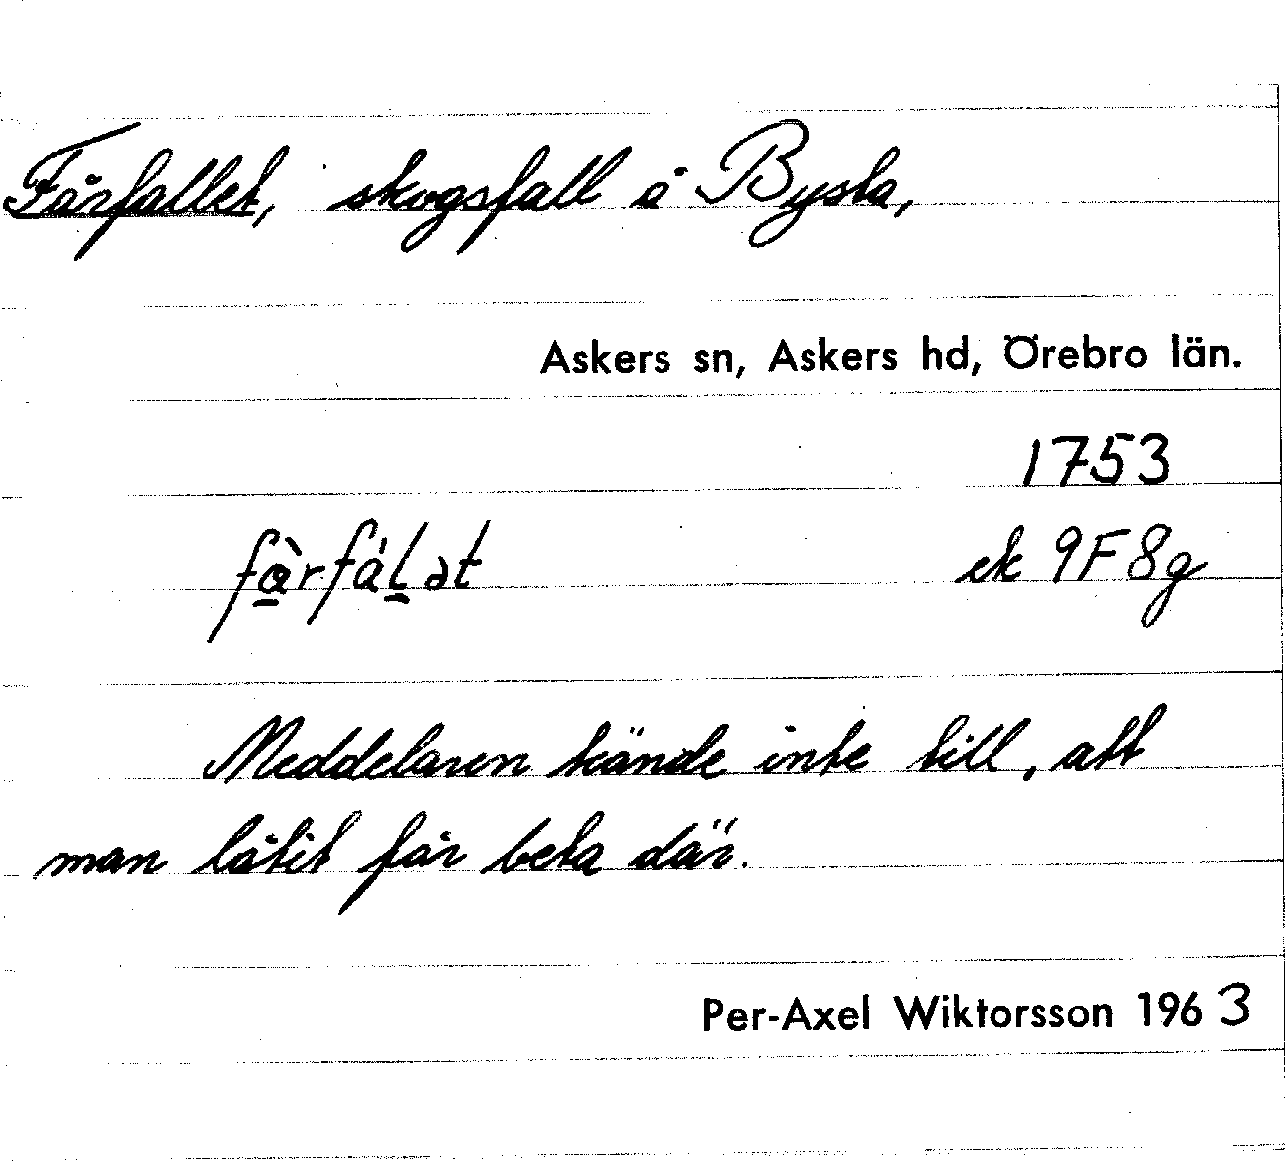 Fårfallet, skogsfall å Bysta,
Askers sn, Askers hd, Örebro län.
1753
fàrfáḷət ek 9F8g
Meddelaren kände inte till, att
man låtit får beta där.
Per-Axel Wiktorsson 1963